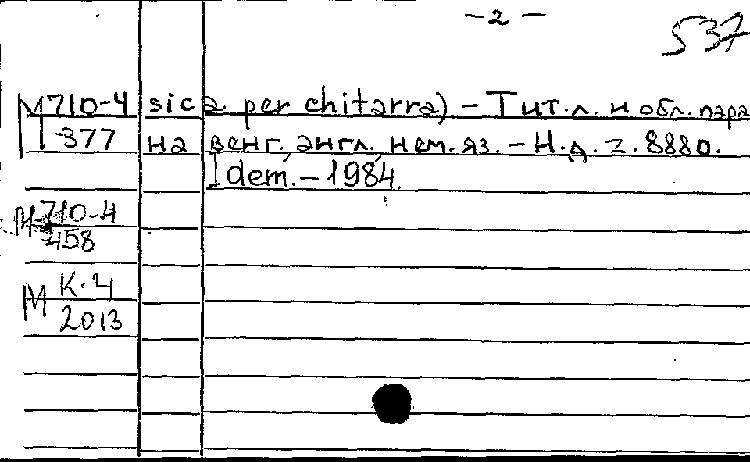 -2-
537
М 710-4 sica per chitarra) - Тит.л. и обл. пара
377 на венг., англ., нем. яз. - Н.д. Z. 8880.
Idem. - 1984.
М 710-4
458
М К-4
2013